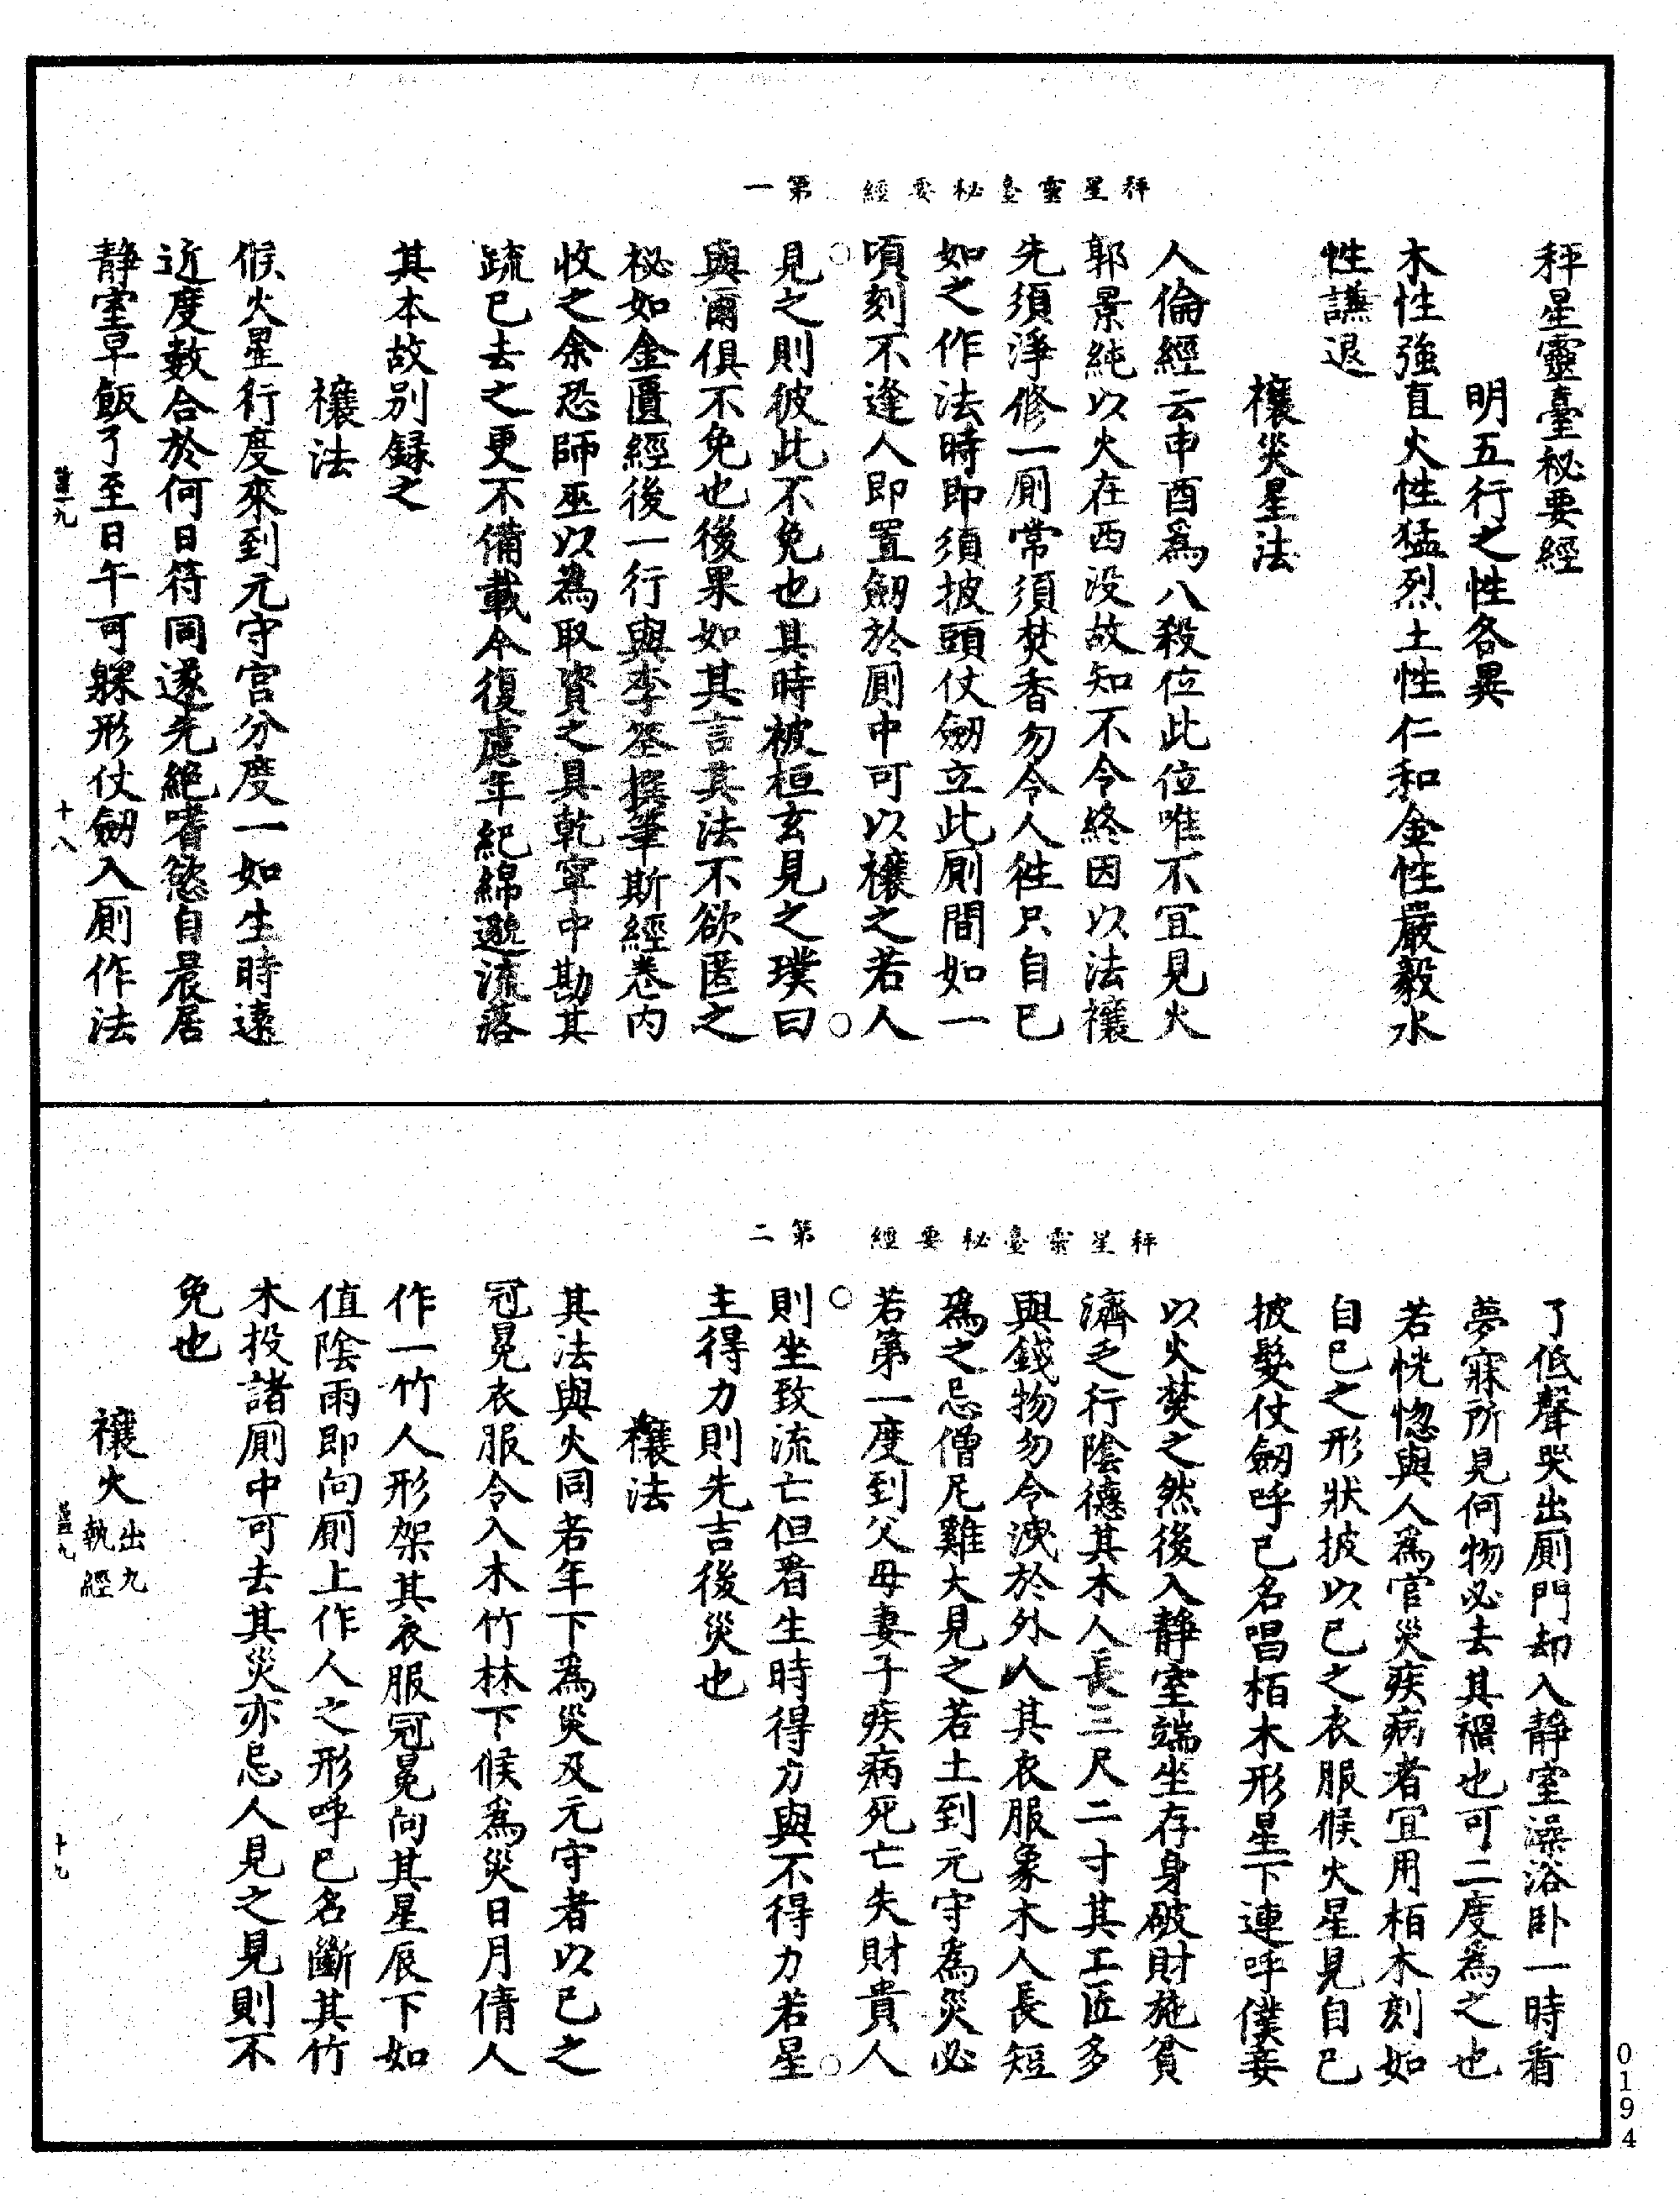 秤星靈臺秘要經
明五行之性各異
木性強直火性猛烈土性仁和金性嚴毅水
性謙退
禳災星法
人倫經云申酉為八殺位此位唯不宜見火
郭景純以火在西没故知不令終因以法禳
先須淨修一厠常須焚香勿令人徃只自己
如之作法時即須披頭仗劒立此厠間如一
頃刻不逢人即置劒於厠中可以禳之若人
見之則彼此不免也其時被桓玄見之璞曰
與爾俱不免也後果如其言其法不欲匿之
秘如金匱經後一行與李筌撰筆斯經卷内
收之余恐師巫以為取資之具乾寧中勘其
疏已去之更不備載今復慮年紀綿邈流落
其本故別録之
禳法
候火星行度來到元守宮分度一如生時遠
近度數合於何日符同遂先絶嗜慾自晨居
静室草飯了至日午可躶形仗劒入厠作法
秤星靈臺秘要經 第一
十八
了低聲哭出厠門却入静室澡浴卧一時看
夢寐所見何物必去其禍也可二度為之也
若恍惚與人為官災疾病者宜用栢木刻如
自己之形狀披以己之衣服候火星見自己
披髮仗劒呼己名唱栢木形星下連呼僕妾
以火焚之然後入静室端坐存身破財施貧
濟乏行陰德其木人長三尺二寸其工匠多
與錢物勿令洩於外人其衣服象木人長短
為之忌僧尼雞犬見之若土到元守為災必
若第一度到父母妻子疾病死亡失財貴人
則坐致流亡但看生時得力與不得力若星
主得力則先吉後災也
禳法
其法與火同若年下為災及元守者以己之
冠冕衣服令入木竹林下候為災日月倩人
作一竹人形架其衣服冠冕向其星辰下如
值陰雨即向厠上作人之形呼己名斷其竹
木投諸厠中可去其災亦忌人見之見則不
免也
禳火出九執經
秤星靈臺秘要經 第二
十九
0194